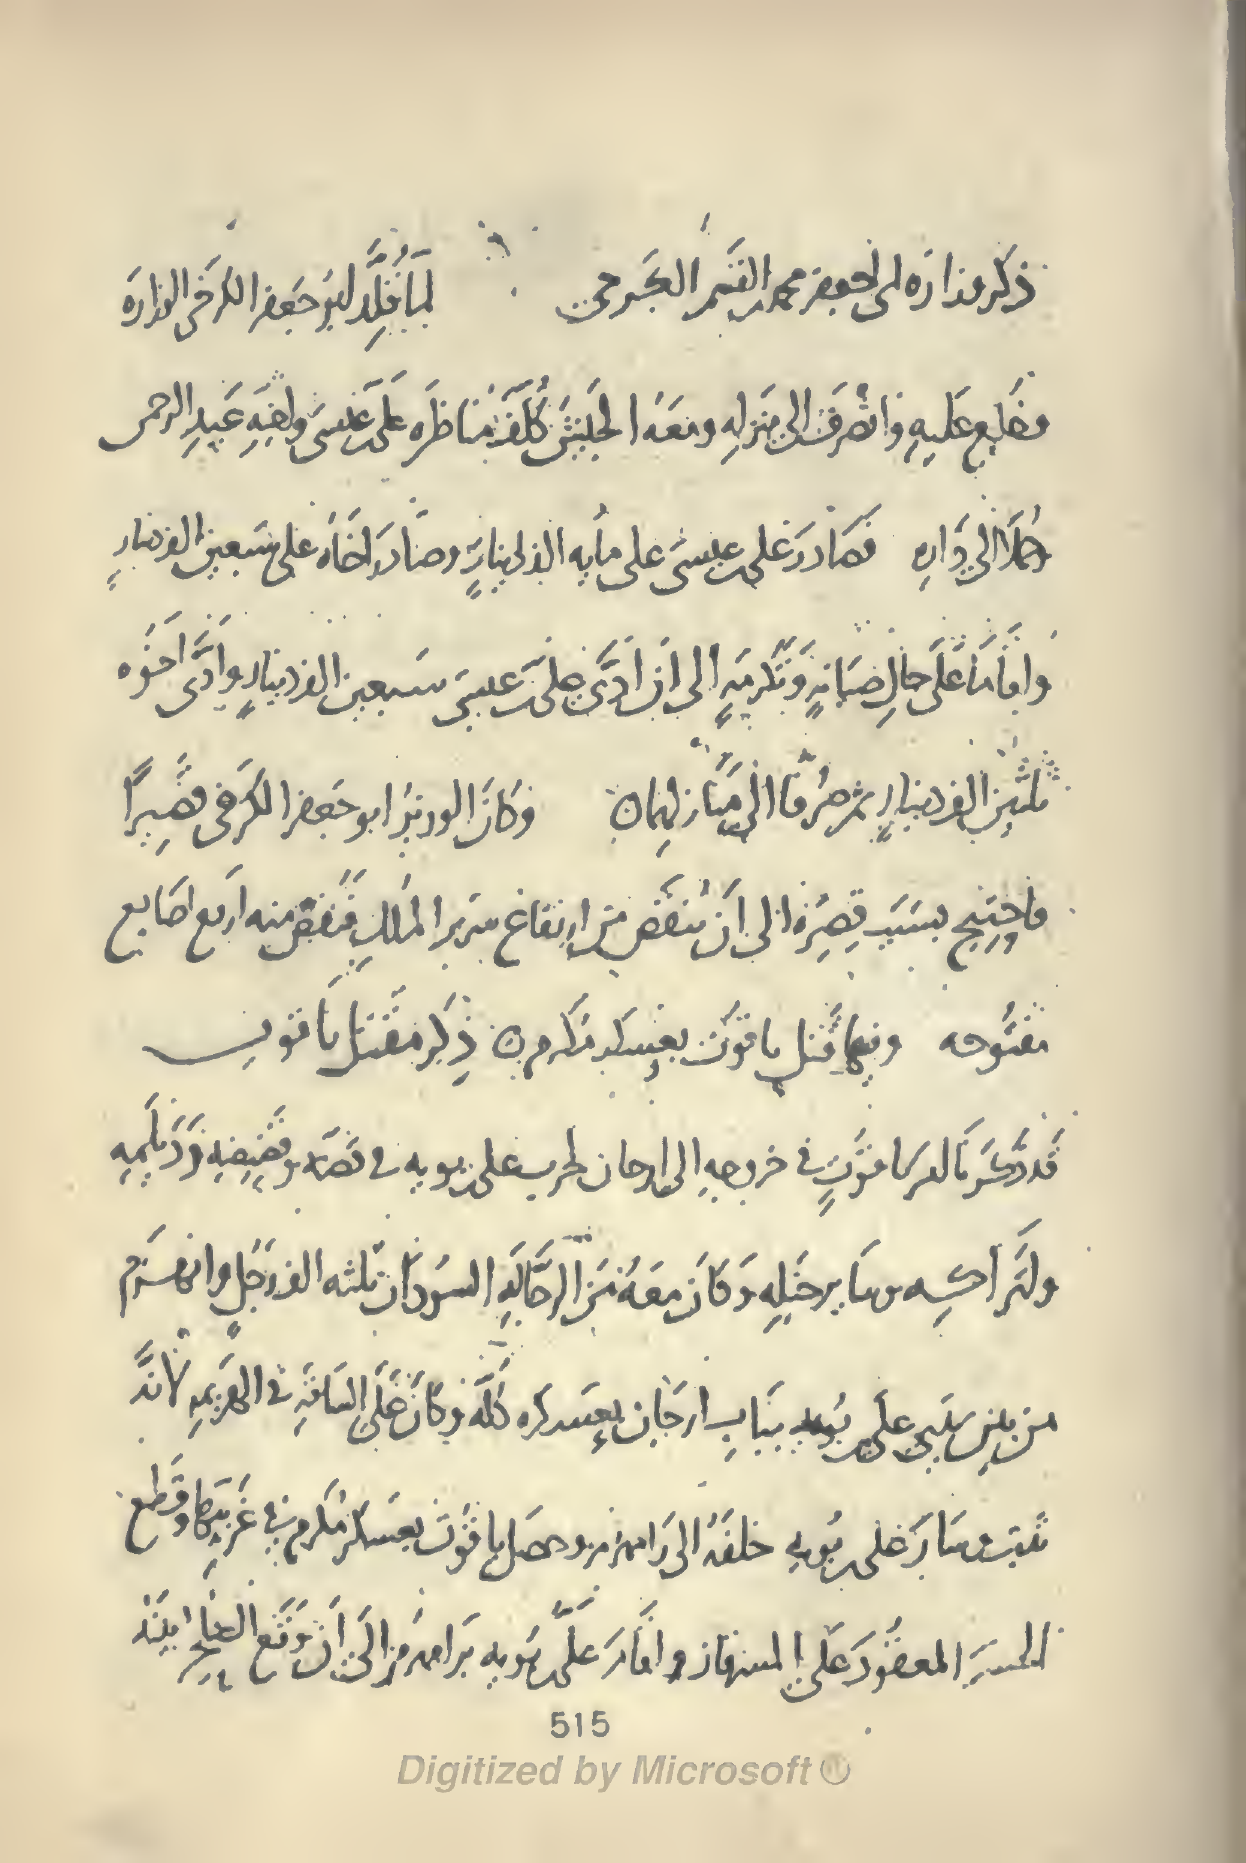 ذكر وزاره ابى جعفر محمد بن القسم الكرخى لمّا قُلِّد ابو جَعفر الكرخى الوزارة
وخُلع عَليهِ وانصَرَف الى منزلِهِ ومعَهُ الجَيش كُلّف مناظرَه علىّ بن عيسَى واخيهِ عَبدِ الرحمن
حُمِلَا الى دَارِه فصَادرَ على بن عيسَى على مايه الف دينارٍ وصَادرَ اخَاه على سَبعين الف دينارٍ
واقامَا عَلى حالِ صيَانهٍ وتَكرمَهٍ الى ان ادّى على بن عيسَى سَبعين الف دينارٍ وادّى اخوُه
ثلثين الف دينارٍ ثم صُرفَا الى مَنَازِلِهمان وكانَ الوزيرُ ابو جَعفر الكرخى قصِيرًا
فاحتِيج بسَبَبِ قِصَرِه الى ان يُنقَص من ارتفاع سَرير المُلكِ فنُقِصَ منه اربع اصَابع
مَفتُوحه وفيها قُتل ياقوُت بعسكر مُكرم ن ذِكر مقتل ياقوت
قَد ذكَرنَا امر ياقوتٍ فى خروجهِ الى ارجان لحرب على بن بويه فى قَضّه وقَضِيضِهِ ودَيلَمِهِ
واتراكِه وسَايرِ جَيلِهِ وَكانَ معَهُ مَن الرجّالَةِ السُودَان ثلثه الف رَجُلٍ وانهَزم
من بين يدى على بن بُويه ببَابِ ارجَان بعسكره كُلّه وكانَ عَلى السَاقَةِ فى الهَزيمهِ لانّه
ثَبت وسَارَ على بن بُويه خلفَهُ الى رَامهرمز وحصَل ياقوُت بعسكر مُكرم فى غَربيّها وقَطع
الجسرَ المعقُودَ عَلى المسرقان واقامَ علىّ بن بُويه برَامهرمز الى ان وَقَع الصّلح بَينَه
515
Digitized by Microsoft ®